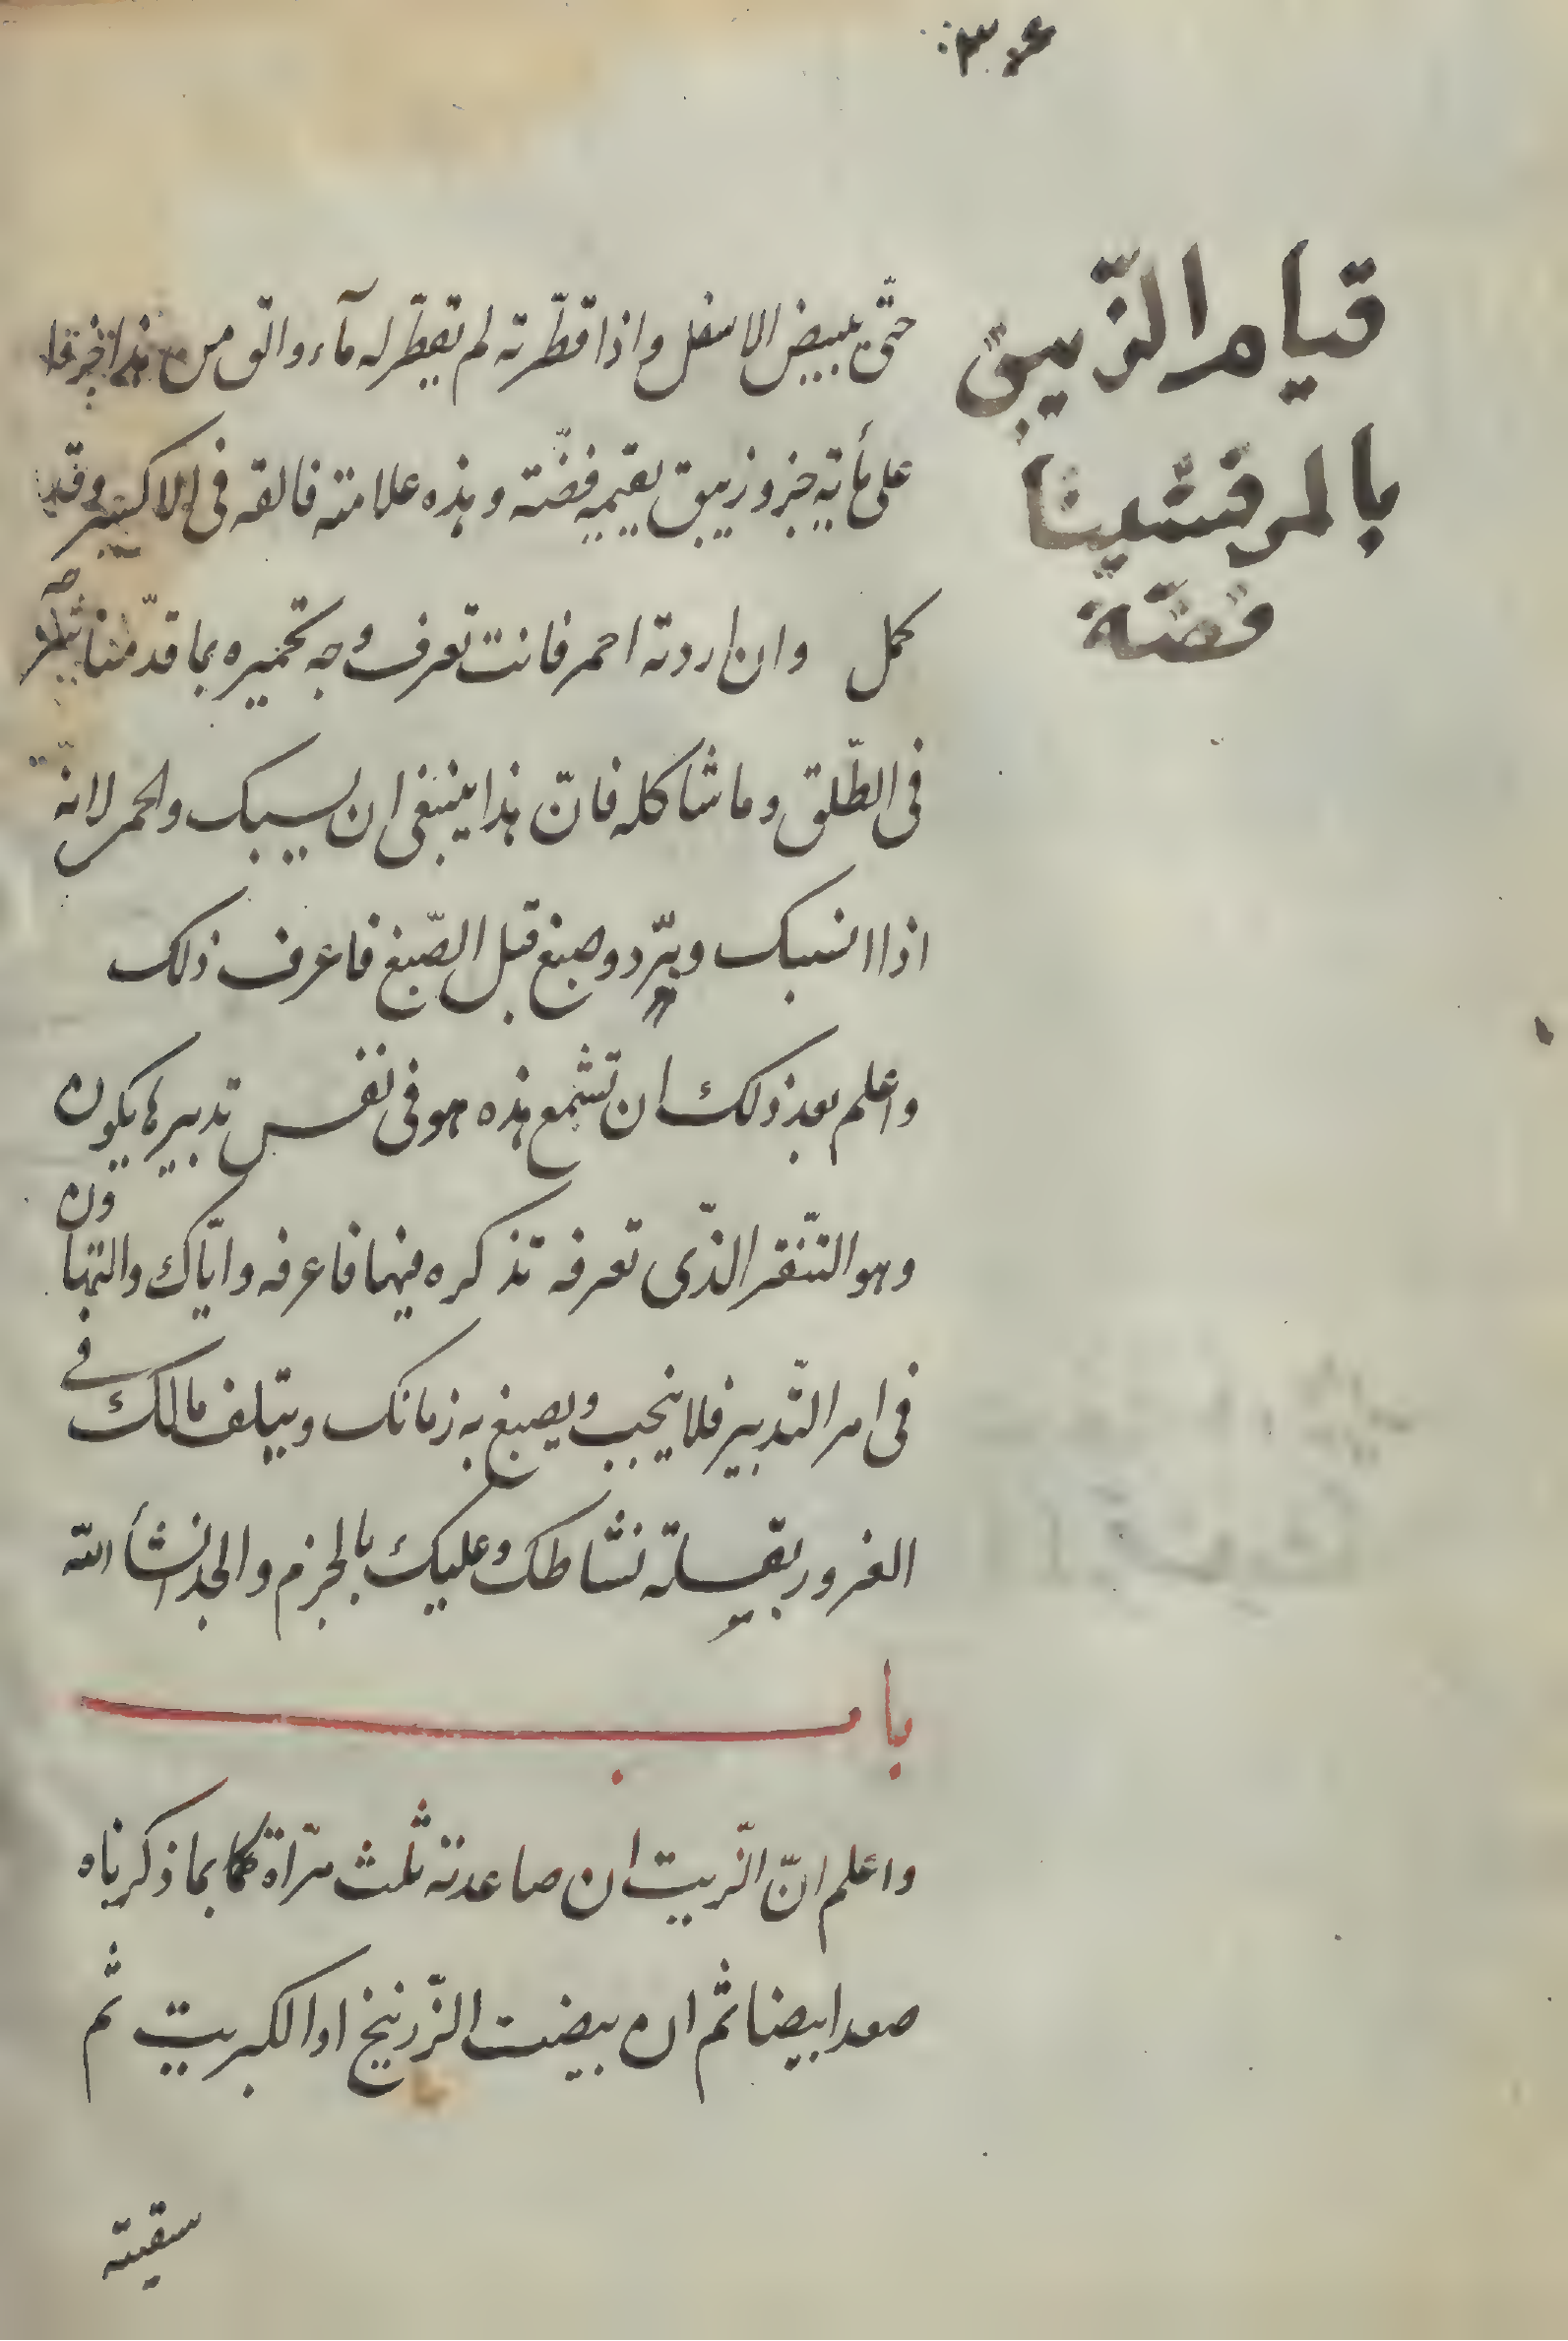 قيام الزّيبق
بالمرقشيثا
فضّة
حتّى يبيض الاسفل واذا قطّرته لم تقطّر له مآء والق من هذا
على مأية جزو زيبق يقيمه فضّته وهذه علامته فالقه فى الاكسير وقد
كمل وان اردته احمر فانت تعرف وجه تحميره بما قدّمنا
فى الطّلق وما شاكله فانّ هذا ينبغى ان يسبك واحمر لانّه
اذا انسبك ويبّرد وصبغ قبل الصّبغ فاعرف ذلك
واعلم بعد ذلك ان تشمع هذه هو فى نفس تدبيرها يكون
وهو التنقر الذّى تعرفه تذكره فيها فاعرفه وايّاك والتهاون
فى امر التّدبير فلا ينجب ويصبغ به زمانك ويتلف مالك فى
الغرور بقيلة نشاطك وعليك بالجزم والجد انشأ الله
باب
واعلم انّ الزيبت ان صاعدته ثلث مرّاة كما بما ذكرناه
صعد ابيضا ثم ان بيضت الزّرنيخ او الكبريت ثم
سقيته